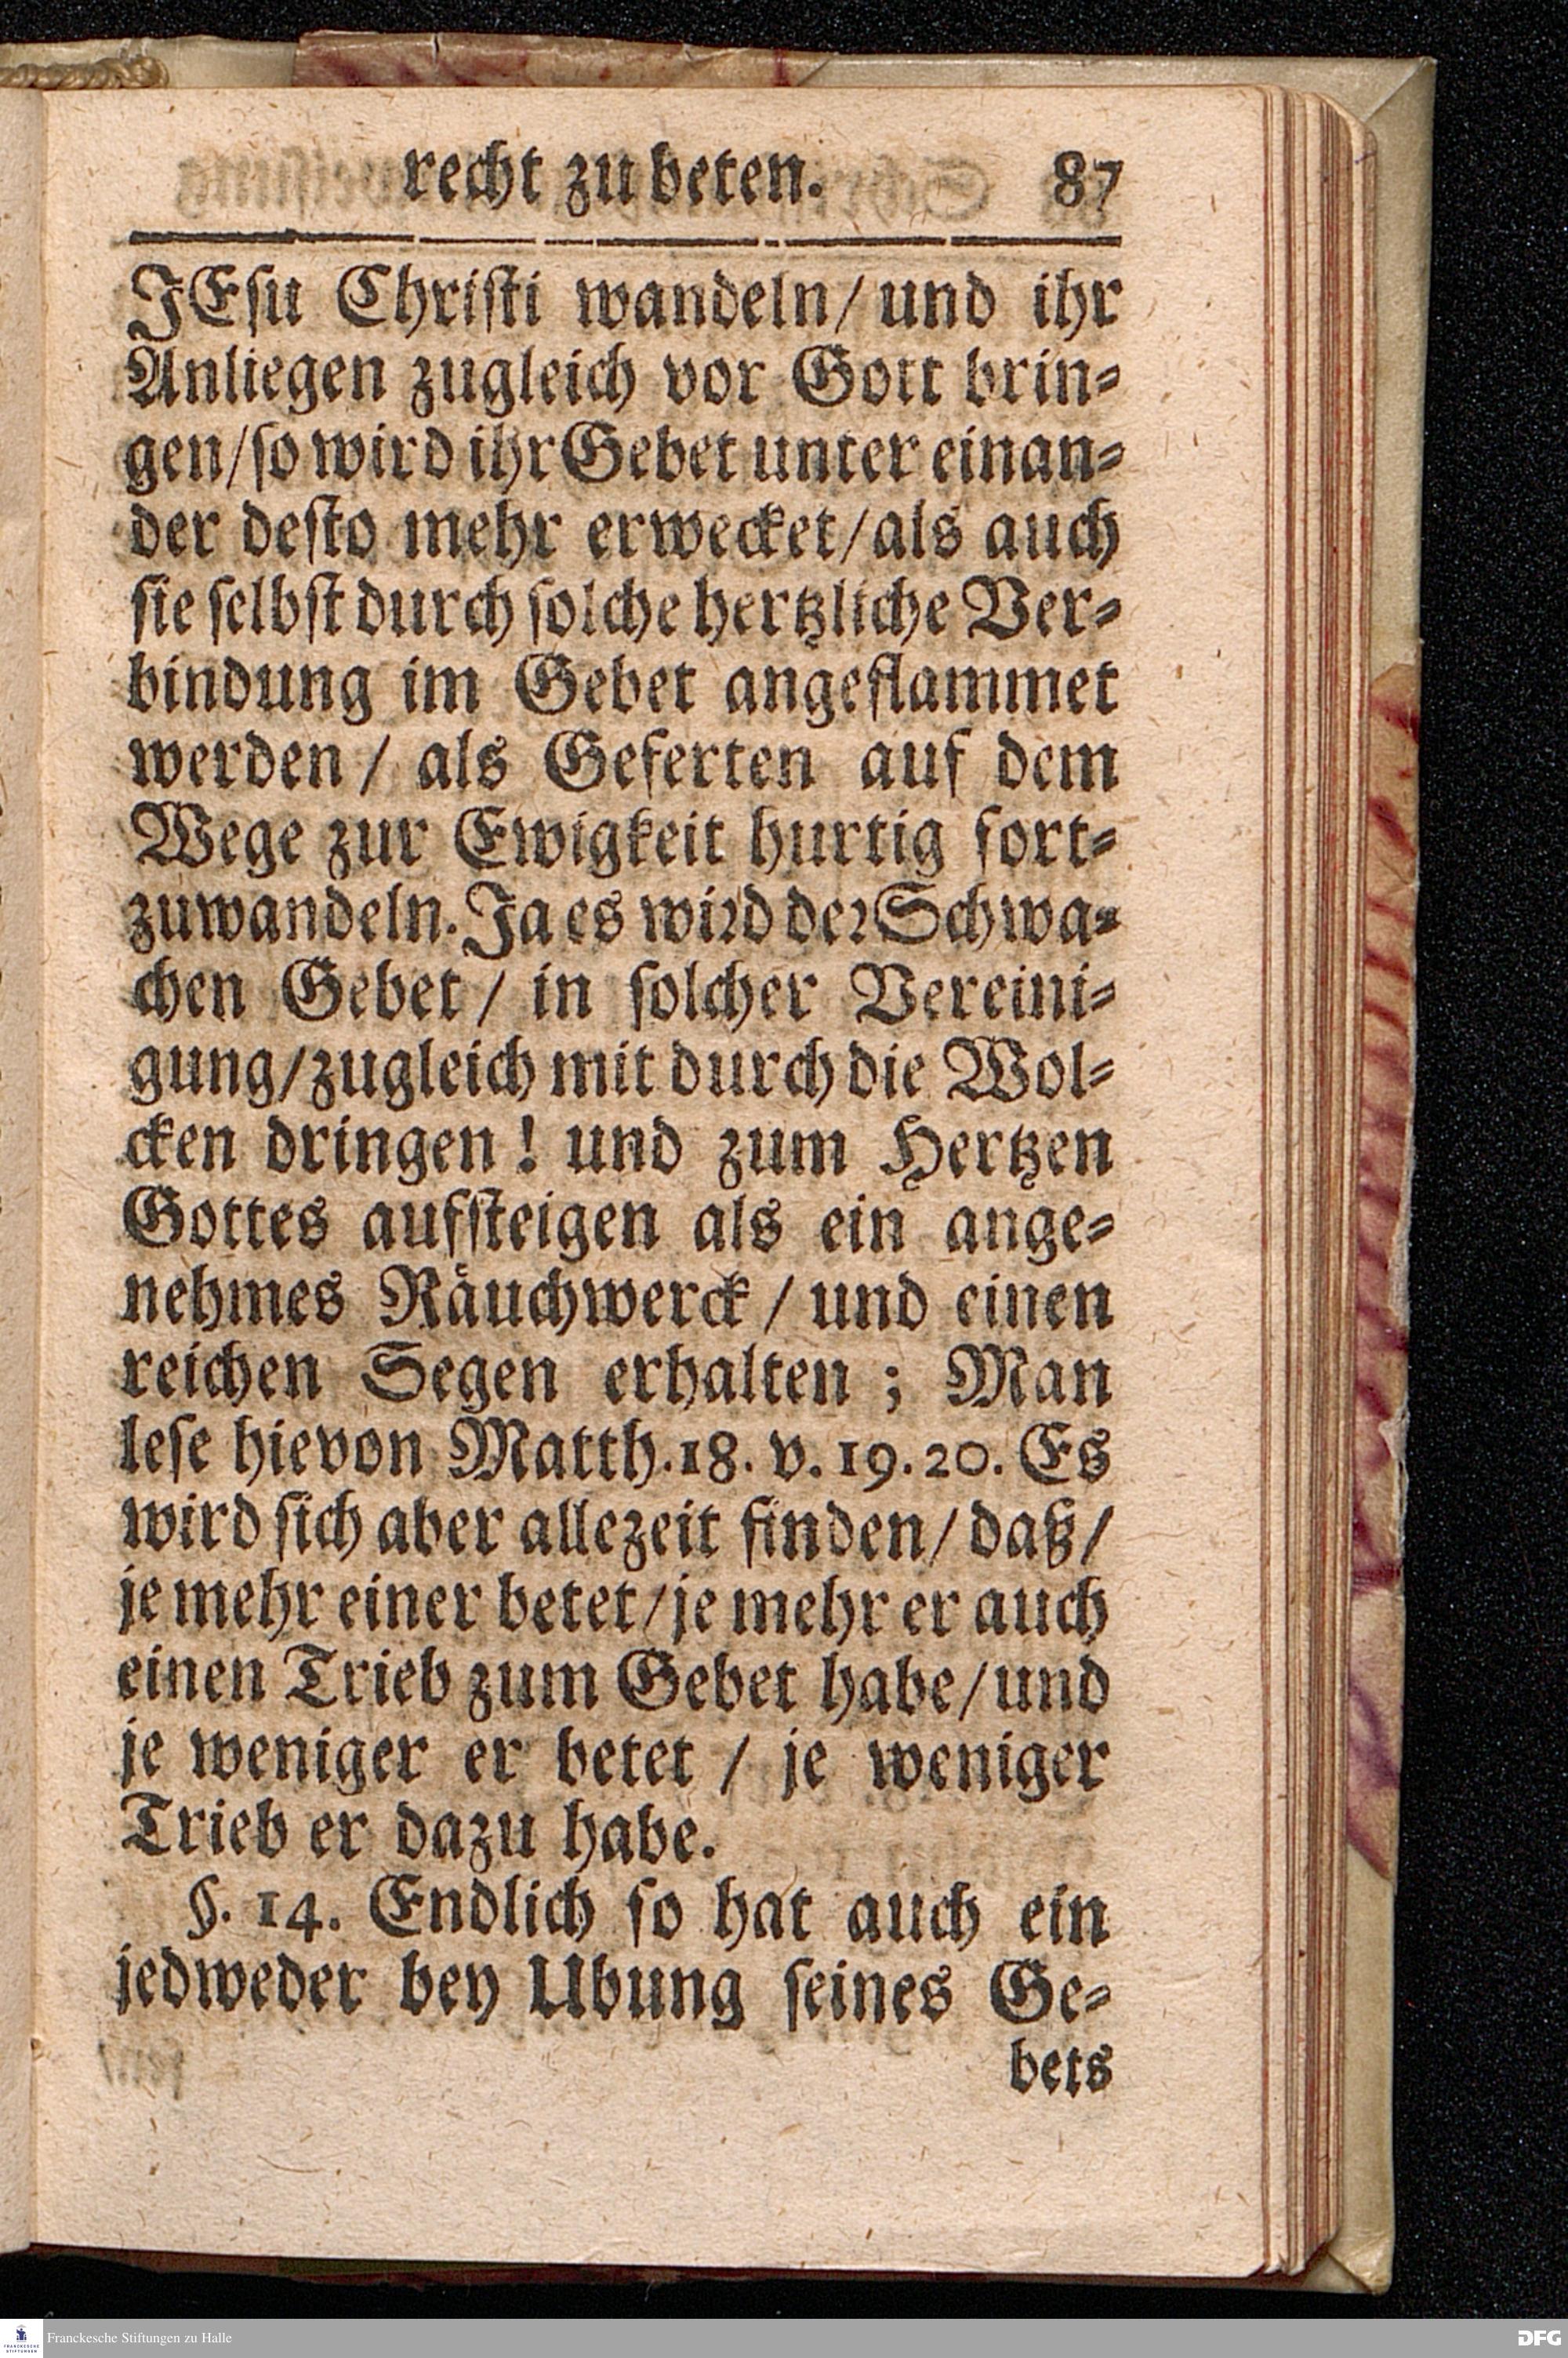 recht zu beten. 87
JEsu Christi wandeln/ und ihr
Anliegen zugleich vor Gott brin-
gen/ so wird ihr Gebet unter einan-
der desto mehr erwecket/ als auch
sie selbst durch solche hertzliche Ver-
bindung im Gebet angeflammet
werden / als Geferten auf dem
Wege zur Ewigkeit hurtig fort-
zuwandeln. Ja es wird der Schwa-
chen Gebet / in solcher Vereini-
gung/ zugleich mit durch die Wol-
cken dringen! und zum Hertzen
Gottes aufsteigen als ein ange-
nehmes Räuchwerck / und einen
reichen Segen erhalten ; Man
lese hievon Matth. 18. v. 19. 20. Es
wird sich aber allezeit finden/ daß/
je mehr einer betet/ je mehr er auch
einen Trieb zum Gebet habe/ und
je weniger er betet / je weniger
Trieb er dazu habe.
§. 14. Endlich so hat auch ein
jedweder bey Ubung seines Ge-
bets
Franckesche Stiftungen zu Halle
DFG